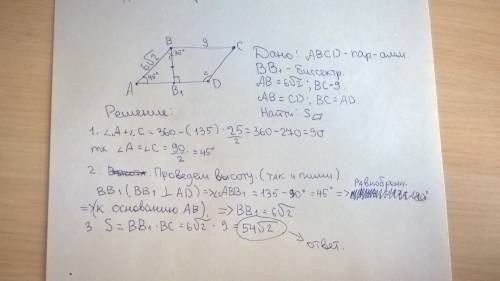 B 9 C
6√2 36°
A 45° B₁ D
Дано: ABCD - пар-амм.
BB₁ - биссектр.
AB = 6√2 ; BC = 9.
AB = CD ; BC = AD.
Найти: S▱
Решение:
1. ∠A + ∠C = 360 - (135) · 2 = 360 - 270 = 90
тк ∠A = ∠C = 90/2 = 45°
2. Проведем высоту. (так и пиши)
BB₁ (BB₁ ⊥ AD) => ∠ABB₁ = 135 - 90° = 45° => Равнобедрен.
=> (к основанию AB) => BB₁ = 6√2
3. S = BB₁ · BC = 6√2 · 9 = 54√2
ответ.